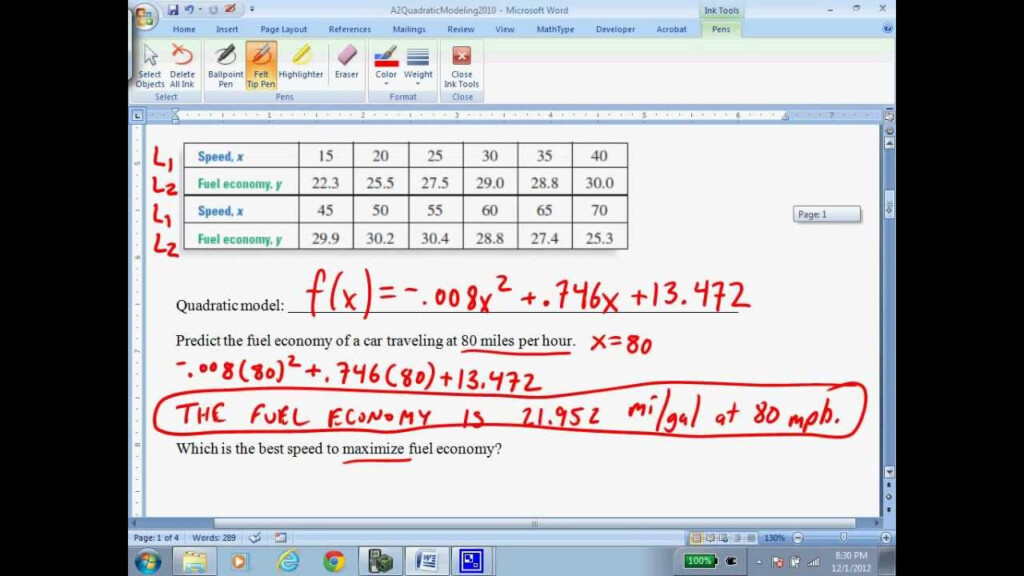 A2QuadraticModeling2010 - Microsoft Word
Ink Tools
Home Insert Page Layout References Mailings Review View MathType Developer Acrobat Pens
Select Objects Delete All Ink Ballpoint Pen Felt Tip Pen Highlighter Eraser Color Weight Close Ink Tools
Select Pens Format Close
L1 Speed, x 15 20 25 30 35 40
L2 Fuel economy, y 22.3 25.5 27.5 29.0 28.8 30.0
L1 Speed, x 45 50 55 60 65 70
L2 Fuel economy, y 29.9 30.2 30.4 28.8 27.4 25.3
Page: 1
Quadratic model: f(x) = -.008x² + .746x + 13.472
Predict the fuel economy of a car traveling at 80 miles per hour. x=80
-.008(80)² + .746(80) + 13.472
THE FUEL ECONOMY IS 21.952 mi/gal at 80 mph.
Which is the best speed to maximize fuel economy?
Page: 1 of 4 Words: 289 130%
100% 8:30 PM
12/1/2012